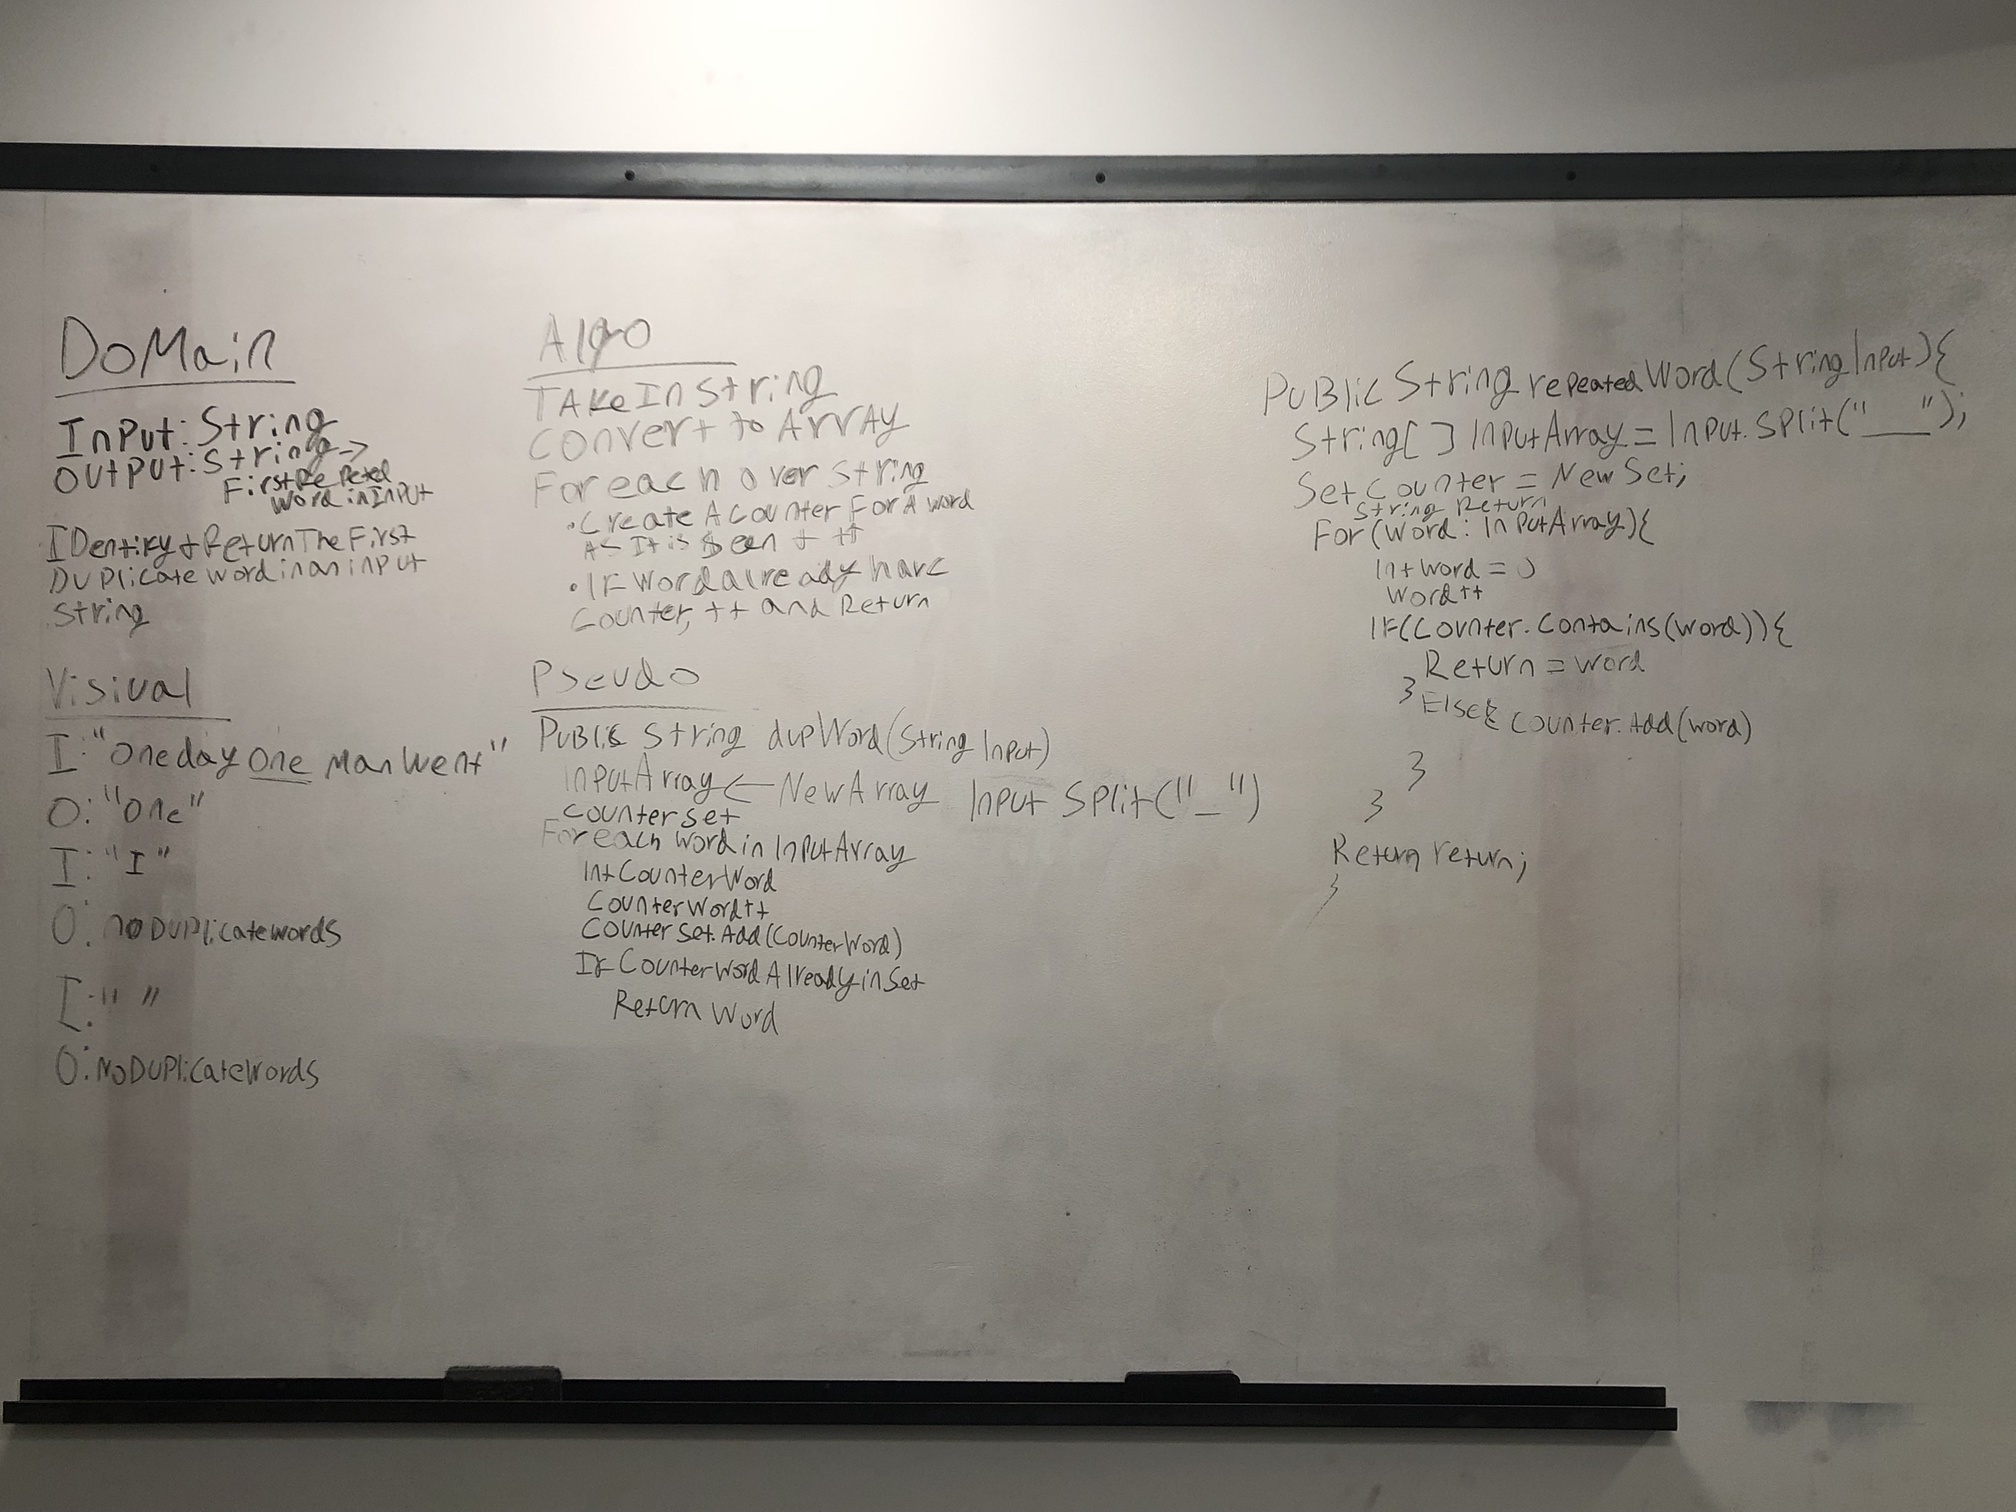 DoMain
InPut: String
OutPut: String →
First Repeted
Word in InPut
IDentify + Return The First
DUPlicate word in an input
String
Visiual
I: "One day One Man Went"
O: "One"
I: "I"
O: no DUPlicate words
I: " "
O: No DUPlicate Words
Algo
TAke In String
Convert to ArrAy
For each over String
• Create A Counter For A word
As It is Seen + ++
• IF word already have
Counter, ++ and Return
Pseudo
Public String dupWord(String InPut)
InPutArray ← New Array InPut Split("_")
Counter Set
For each word in InPutArray
Int CounterWord
CounterWord++
CounterSet.Add(CounterWord)
If CounterWord Already in Set
Return Word
PuBlic String repeatedWord(String InPut){
String[] InPutArray = InPut.SPlit("__");
Set Counter = New Set;
String Return
For(Word: InPutArray){
Int word = 0
Word++
IF(Counter.Contains(word)){
Return = word
} Else{ Counter.Add(word)
}
}
Return return;
}